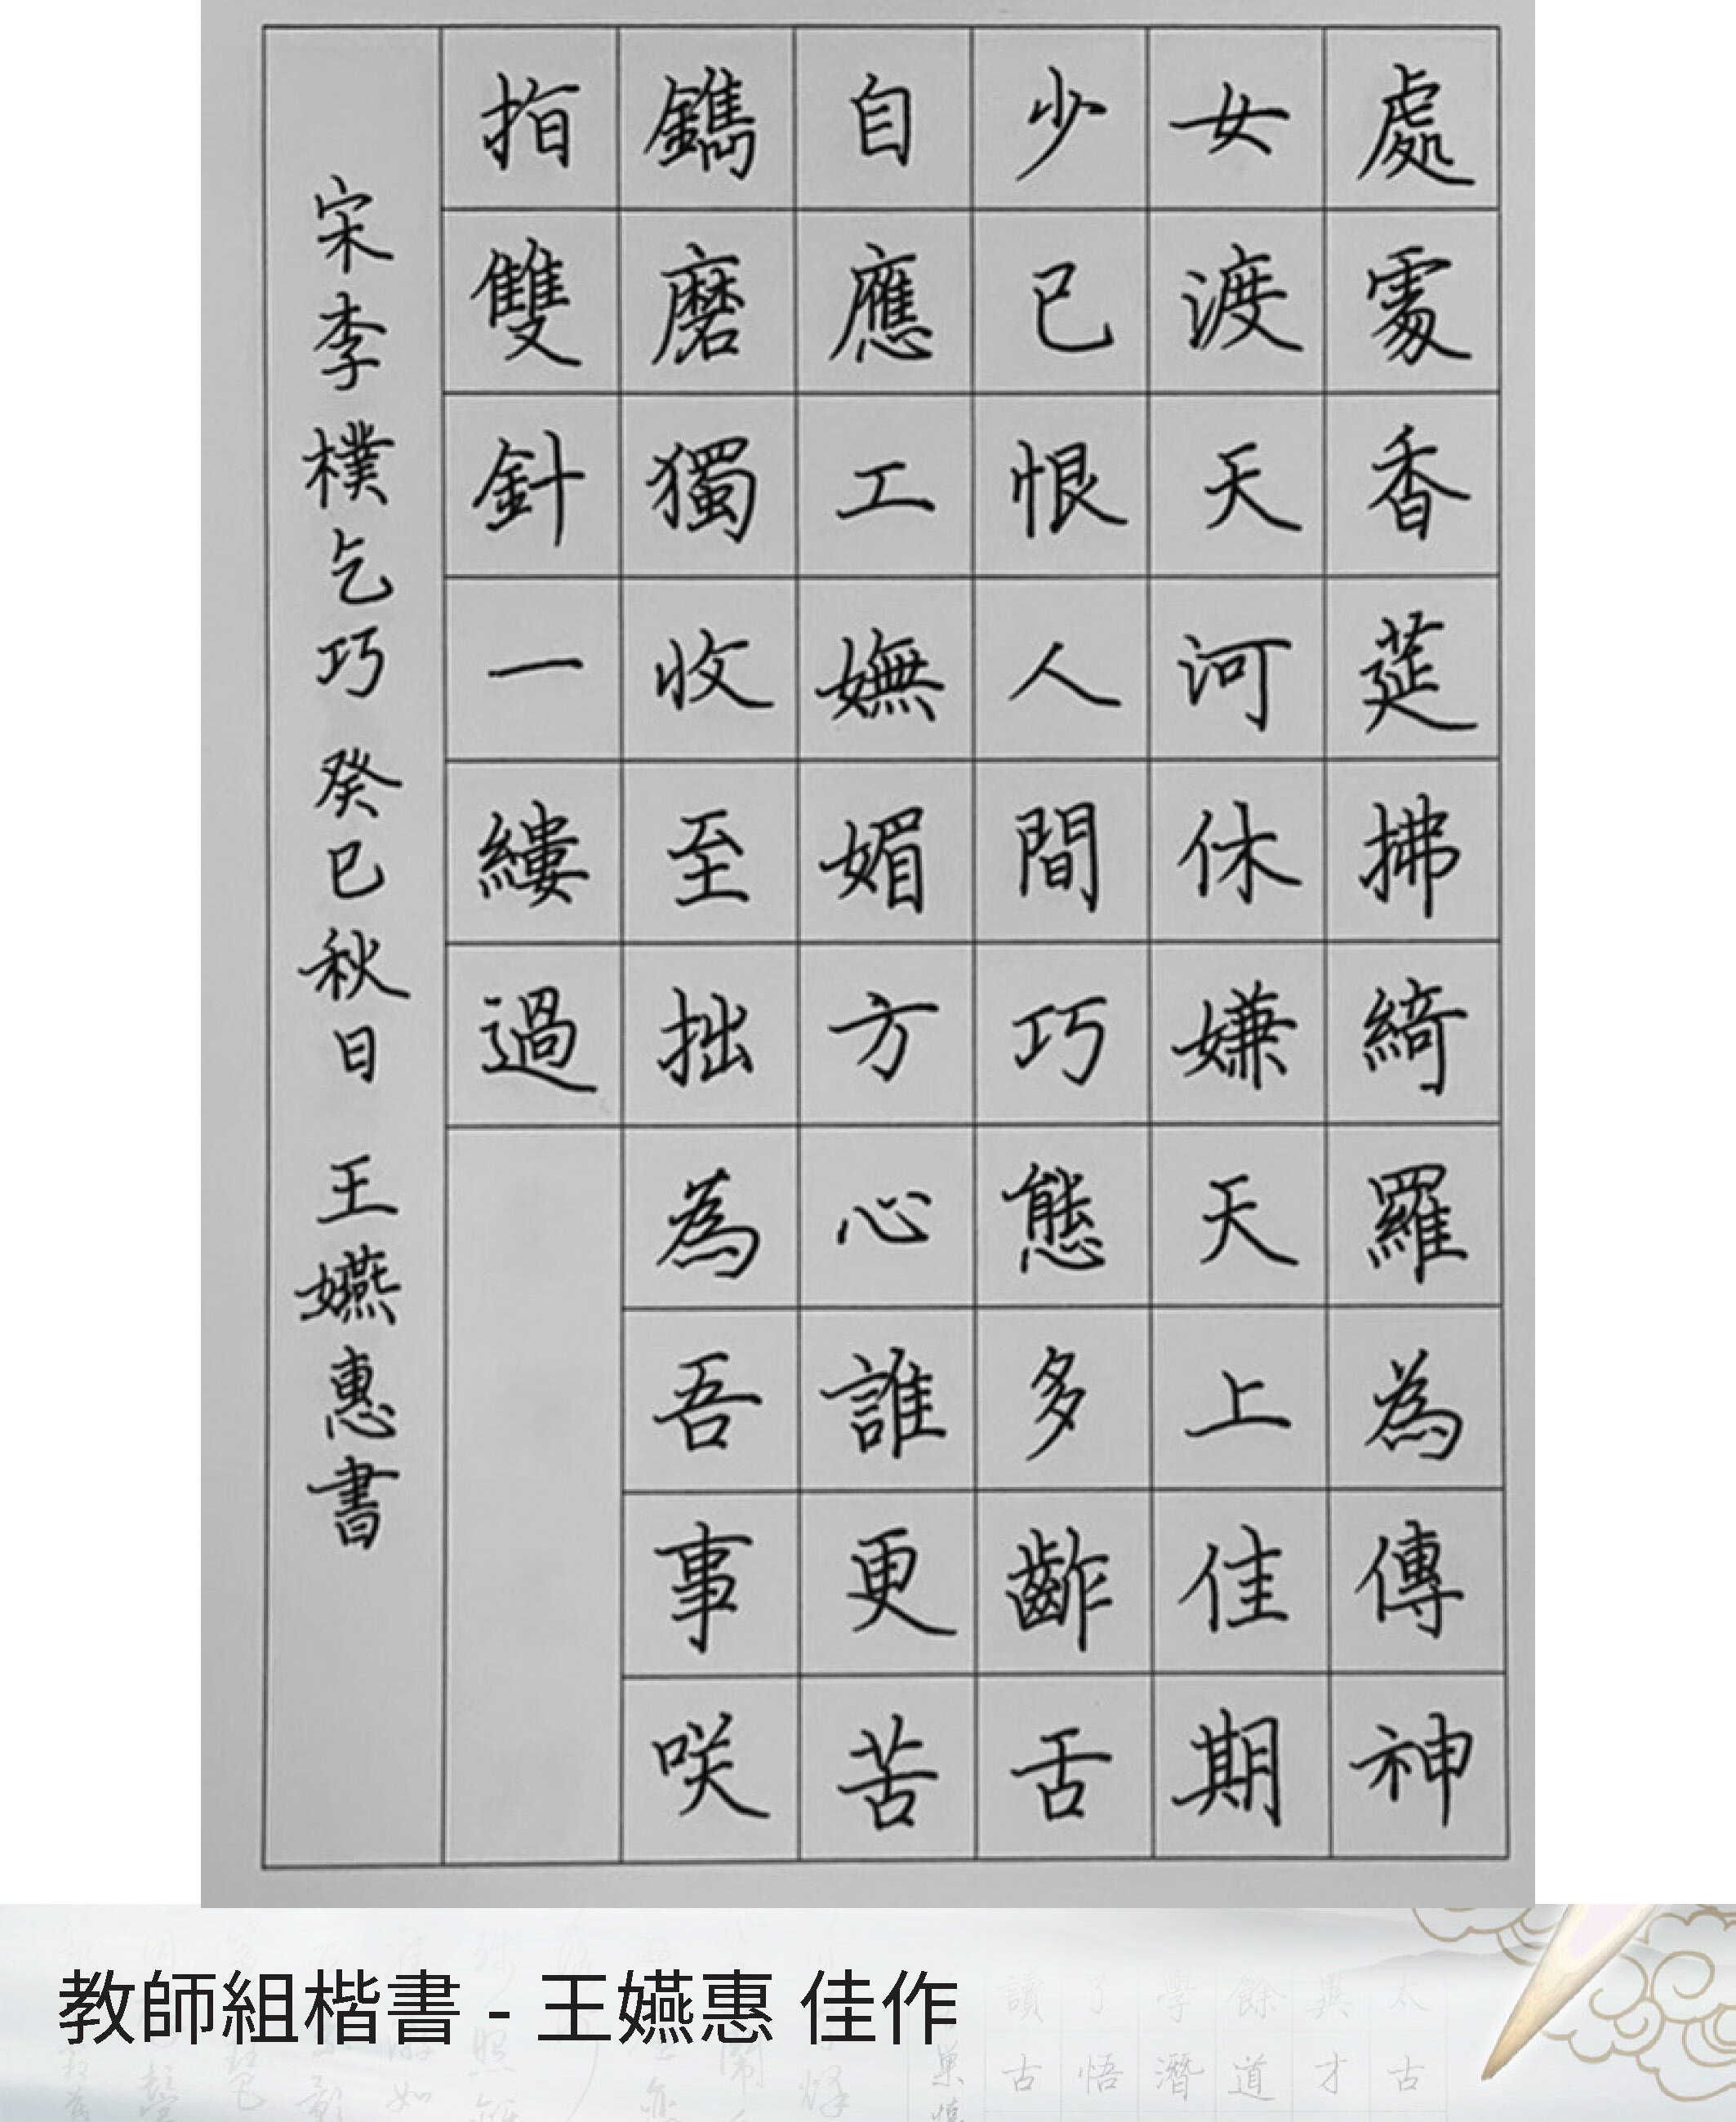 處處香莚拂綺羅為傳神
女渡天河休嫌天上佳期
少已恨人間巧態多齰舌
自應工嫵媚方心誰更苦
鐫磨獨收至拙為吾事咲
指雙針一縷過
宋李樸乞巧 癸巳秋日 王嬿惠書
教師組楷書 - 王嬿惠 佳作